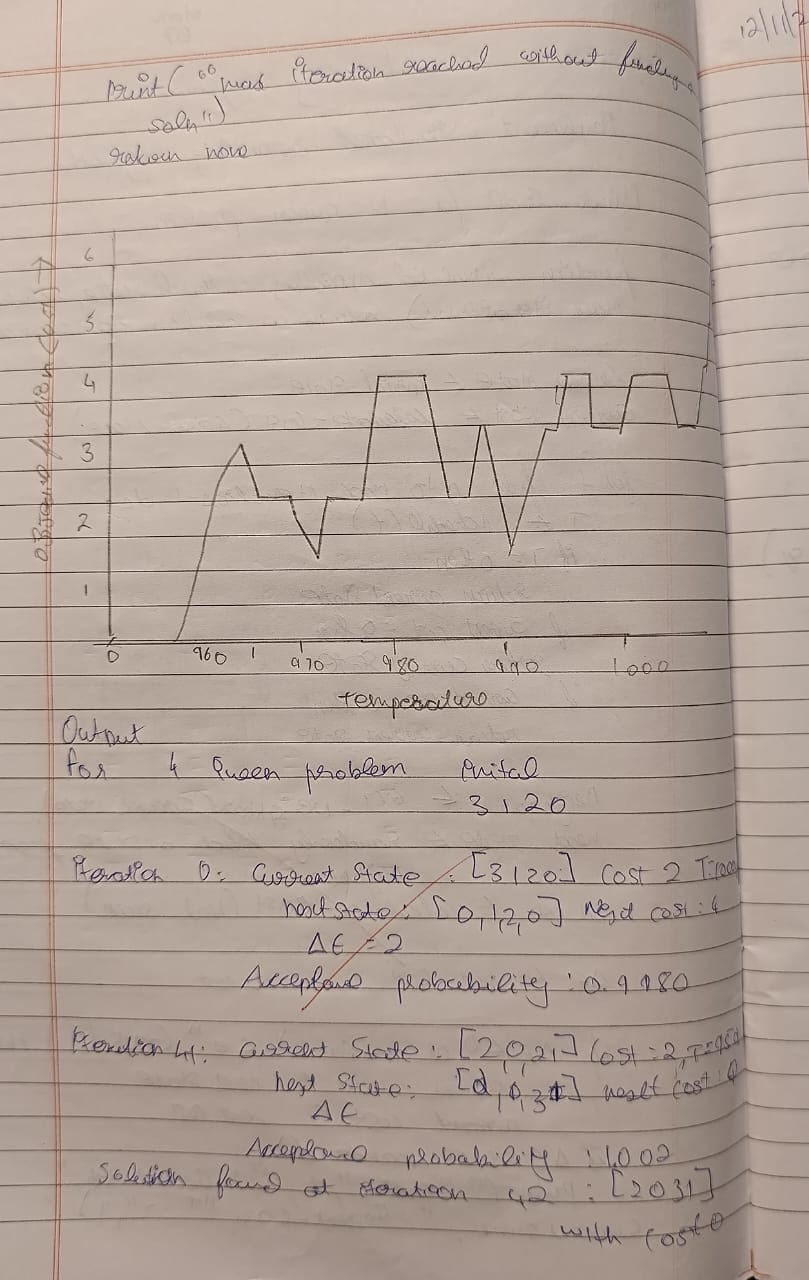 12/11/2
print("max iteration reached without finding a
soln")
return none
6
5
4
3
2
1
objective function (cost) →
0 960 970 980 990 1000
temperature
Output
for 4 Queen problem Initial
= 3120
Iteration 0: Current State: [3120] Cost 2 T=1000
next state: [0,1,2,0] Next cost: 4
ΔE = 2
Acceptance probability: 0.9980
Iteration 41: Current State: [2,0,2,1] Cost: 2, T=
next State: [2,0,31] next cost: 0
ΔE
Acceptance probability: 1.002
Solution found at iteration 42: [2031]
with cost 0